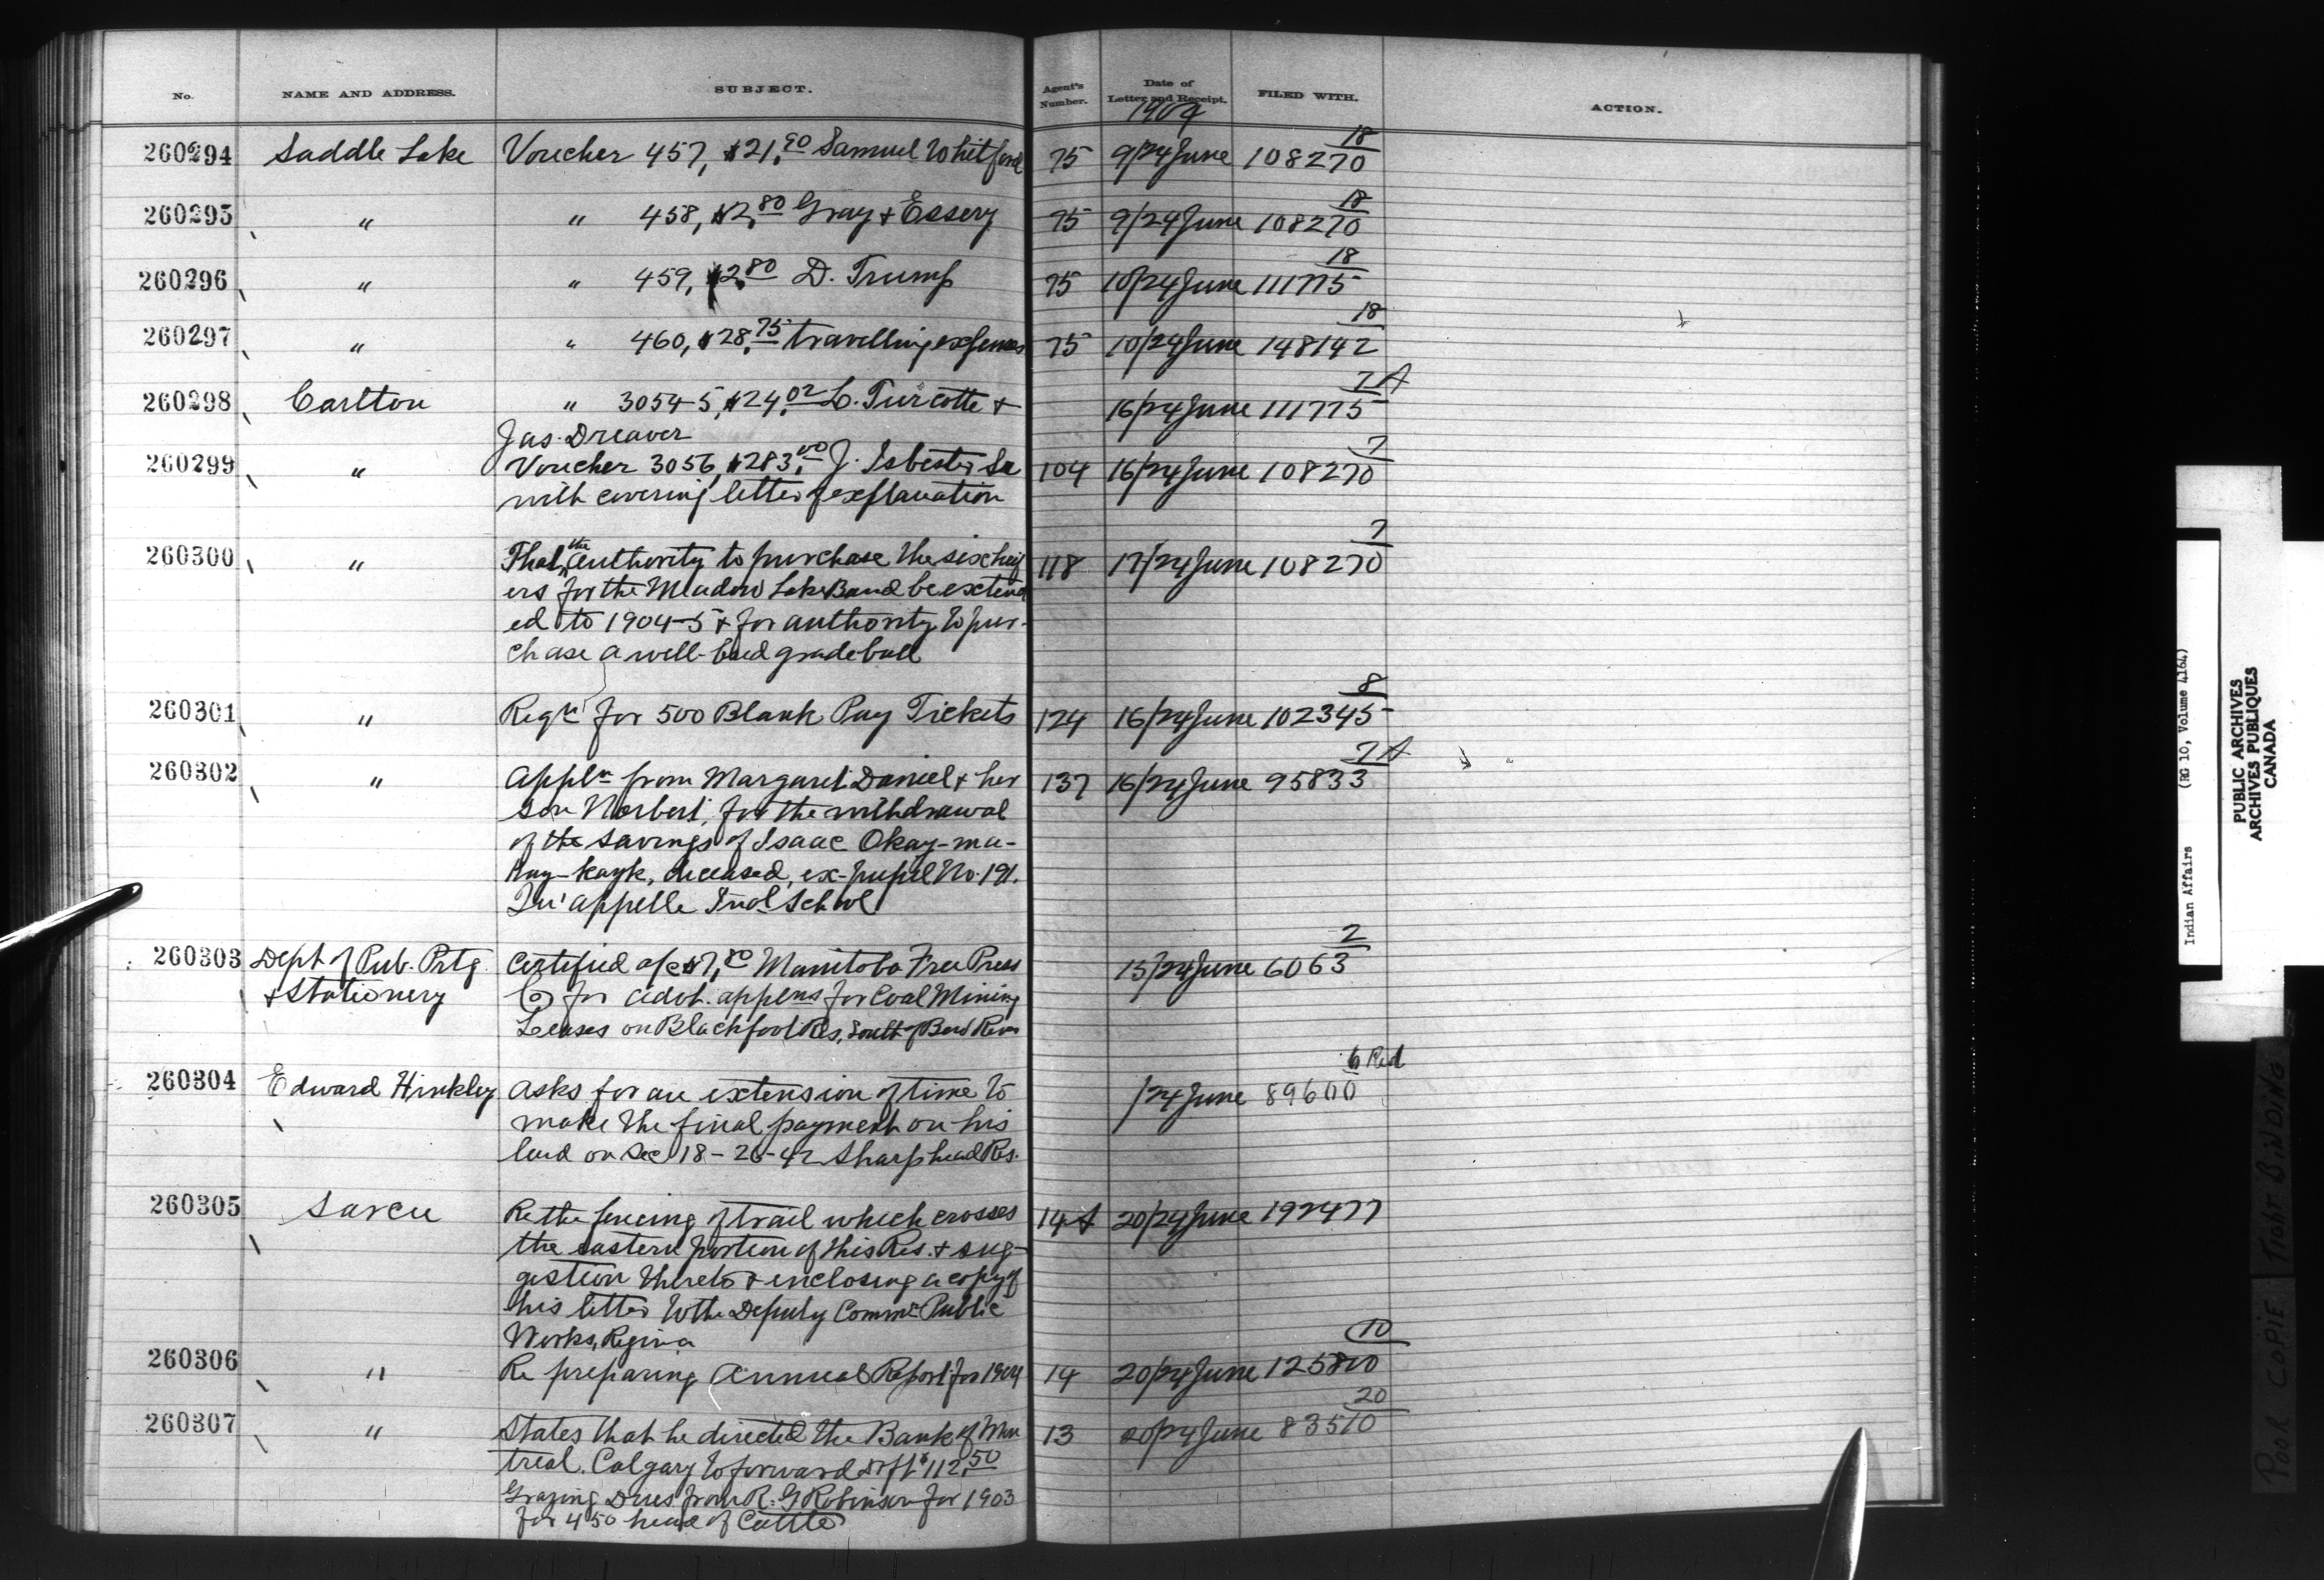 No. NAME AND ADDRESS. SUBJECT. Agent's Number. Date of Letter and Receipt. FILED WITH. ACTION.
1904
260294 Saddle Lake Voucher 457, $21.90 Samuel Whitford 75 9/24 June 108270 18
260295 " " 458, $2.80 Gray & Essery 75 9/24 June 108270 18
260296 " " 459, $2.80 D. Trump 75 10/24 June 111775 18
260297 " " 460, $28.75 travelling expenses 75 10/24 June 148142 18
260298 Carlton " 3054-5, $24.02 L. Turcotte & 16/24 June 111775 7A
Jas. Dreaver
260299 " Voucher 3056, $283.00 J. Isbester Sr 104 16/24 June 108270 7
with covering letter of explanation
260300 " That the authority to purchase the six heif 118 17/24 June 108270 7
ers for the Meadow Lake Band be extend
ed to 1904-5 & for authority to pur-
chase a well-bred grade bull
260301 " Reqn for 500 Blank Pay Tickets 124 16/24 June 102345 8
260302 " Appln from Margaret Daniel & her 137 16/24 June 95833 7A
son Norbert, for the withdrawal
of the savings of Isaac Okay-ma-
kay-kayk, deceased, ex-pupil No. 191.
Qu'appelle Indl School
260303 Dept of Pub. Prtg. Certified a/c $7.80 Manitoba Free Press 15/24 June 6063 2
& Stationery Co for advt. applns for Coal Mining
Leases on Blackfoot Res, South of Bow River
260304 Edward Hinkley Asks for an extension of time to /24 June 89600 6 Red
make the final payment on his
land on Sec 18-26-42 Sharphead Res.
260305 Sarcee Re the fencing of trail which crosses 14A 20/24 June 192477
the eastern portion of this Res. & sug-
gestion thereto & enclosing a copy of
his letter to the Deputy Commr Public
Works, Regina
260306 " Re preparing Annual Report for 1904 14 20/24 June 125800 10
260307 " States that he directed the Bank of Mon 13 20/24 June 83510 20
treal. Calgary to forward drft $112.50
Grazing Dues from R. G Robinson for 1903
for 450 head of Cattle
Indian Affairs (RG 10, Volume 4164)
PUBLIC ARCHIVES
ARCHIVES PUBLIQUES
CANADA
POOR COPIE TIGHT BINDING